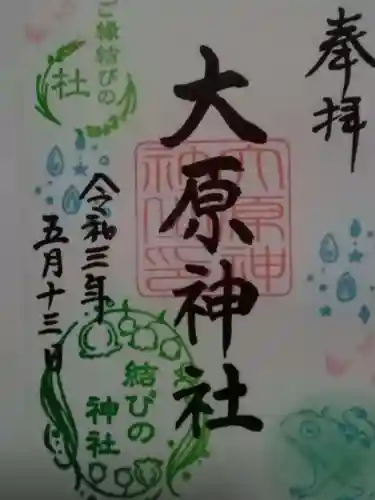 奉拝
大原神社
大原神社印
ご縁結びの
社
令和三年
五月十三日
結びの
神社